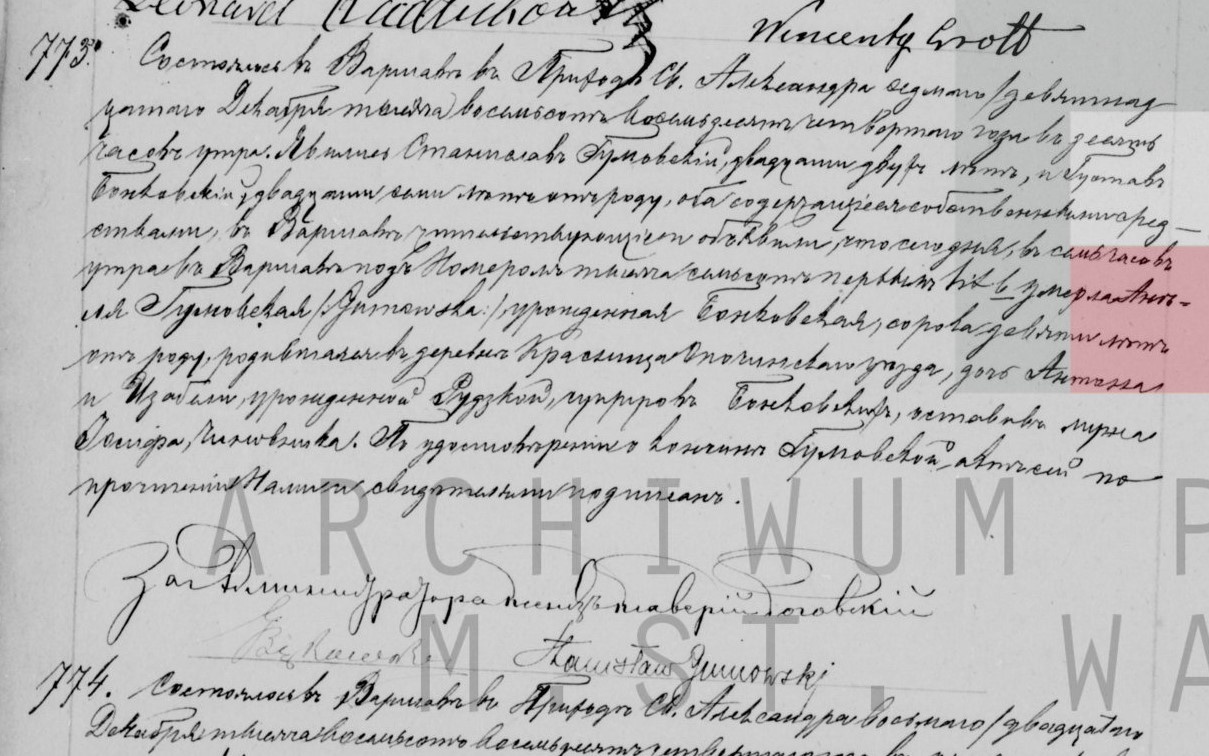 Wincenty Grott
773. Состоялось въ Варшавѣ въ Приходѣ Св. Александра седмаго /девятнад
цатаго Декабря тысяча восемьсотъ восемьдесятъ четвертаго года въ десять
часовъ утра. Явились Станиславъ Гумовскій, двадцати двухъ лѣтъ, и Густавъ
Бонковскій, двадцати семи лѣтъ отъ роду, оба содержащіеся собственными сред-
ствами, въ Варшавѣ жительствующіе и объявили, что сегодня, въ семь часовъ
утра въ Варшавѣ подъ Номеромъ тысяча семьсотъ первымъ lit b умерла Анѣ-
ля Гумовская /:Gumowska:/ урожденная Бонковская, сорока девяти лѣтъ
отъ роду, родившаяся въ деревнѣ Красница Опочинскаго уѣзда, дочь Антона
и Изабели, урожденной Рудзкой, супруговъ Бонковскихъ, оставивъ мужа
Іосифа, чиновника. По удостовѣреніи о кончинѣ Гумовской, актъ сей по
прочтеніи Нами и свидѣтелями подписанъ.
За Администратора ксендзъ Ксаверій Роговскій
Stanisław Gumowski
774. Состоялось въ Варшавѣ въ Приходѣ Св. Александра восьмаго /двадцатаго
Декабря тысяча восемьсотъ восемьдесятъ четвертаго
ARCHIWUM P
M. ST. WA